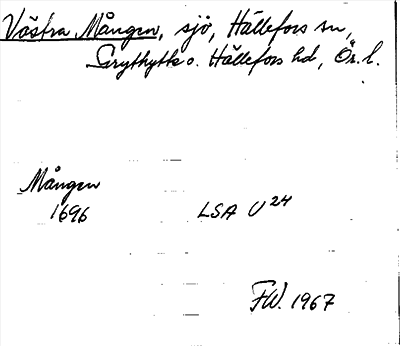 Västra Mången, sjö, Hällefors sn,
Grythytte o. Hällefors hd, Ör. l.
Mången
1696 LSA U 24
F.W. 1967